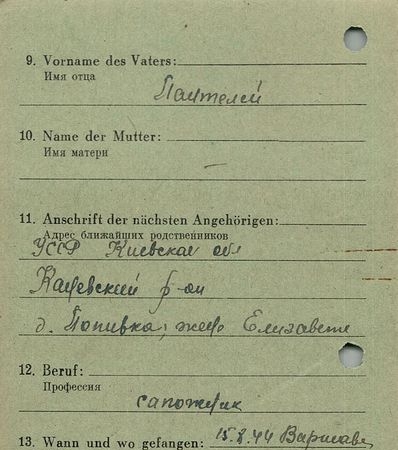 9. Vorname des Vaters:
Имя отца
Пантелей
10. Name der Mutter:
Имя матери
—
11. Anschrift der nächsten Angehörigen:
Адрес ближайших родственников
УССР Киевская обл
Каневский р-он
д. Попивка, жена Елизавета
12. Beruf:
Профессия
сапожник
13. Wann und wo gefangen: 15.8.44 Варшаве